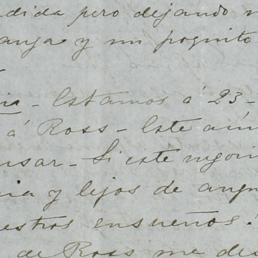 dida pero dejando
y un poquito
Estamos á 23 -
á Ross - Este aún
nsar - Si este
ia y lejos de
estros ensueños!
de Ross me